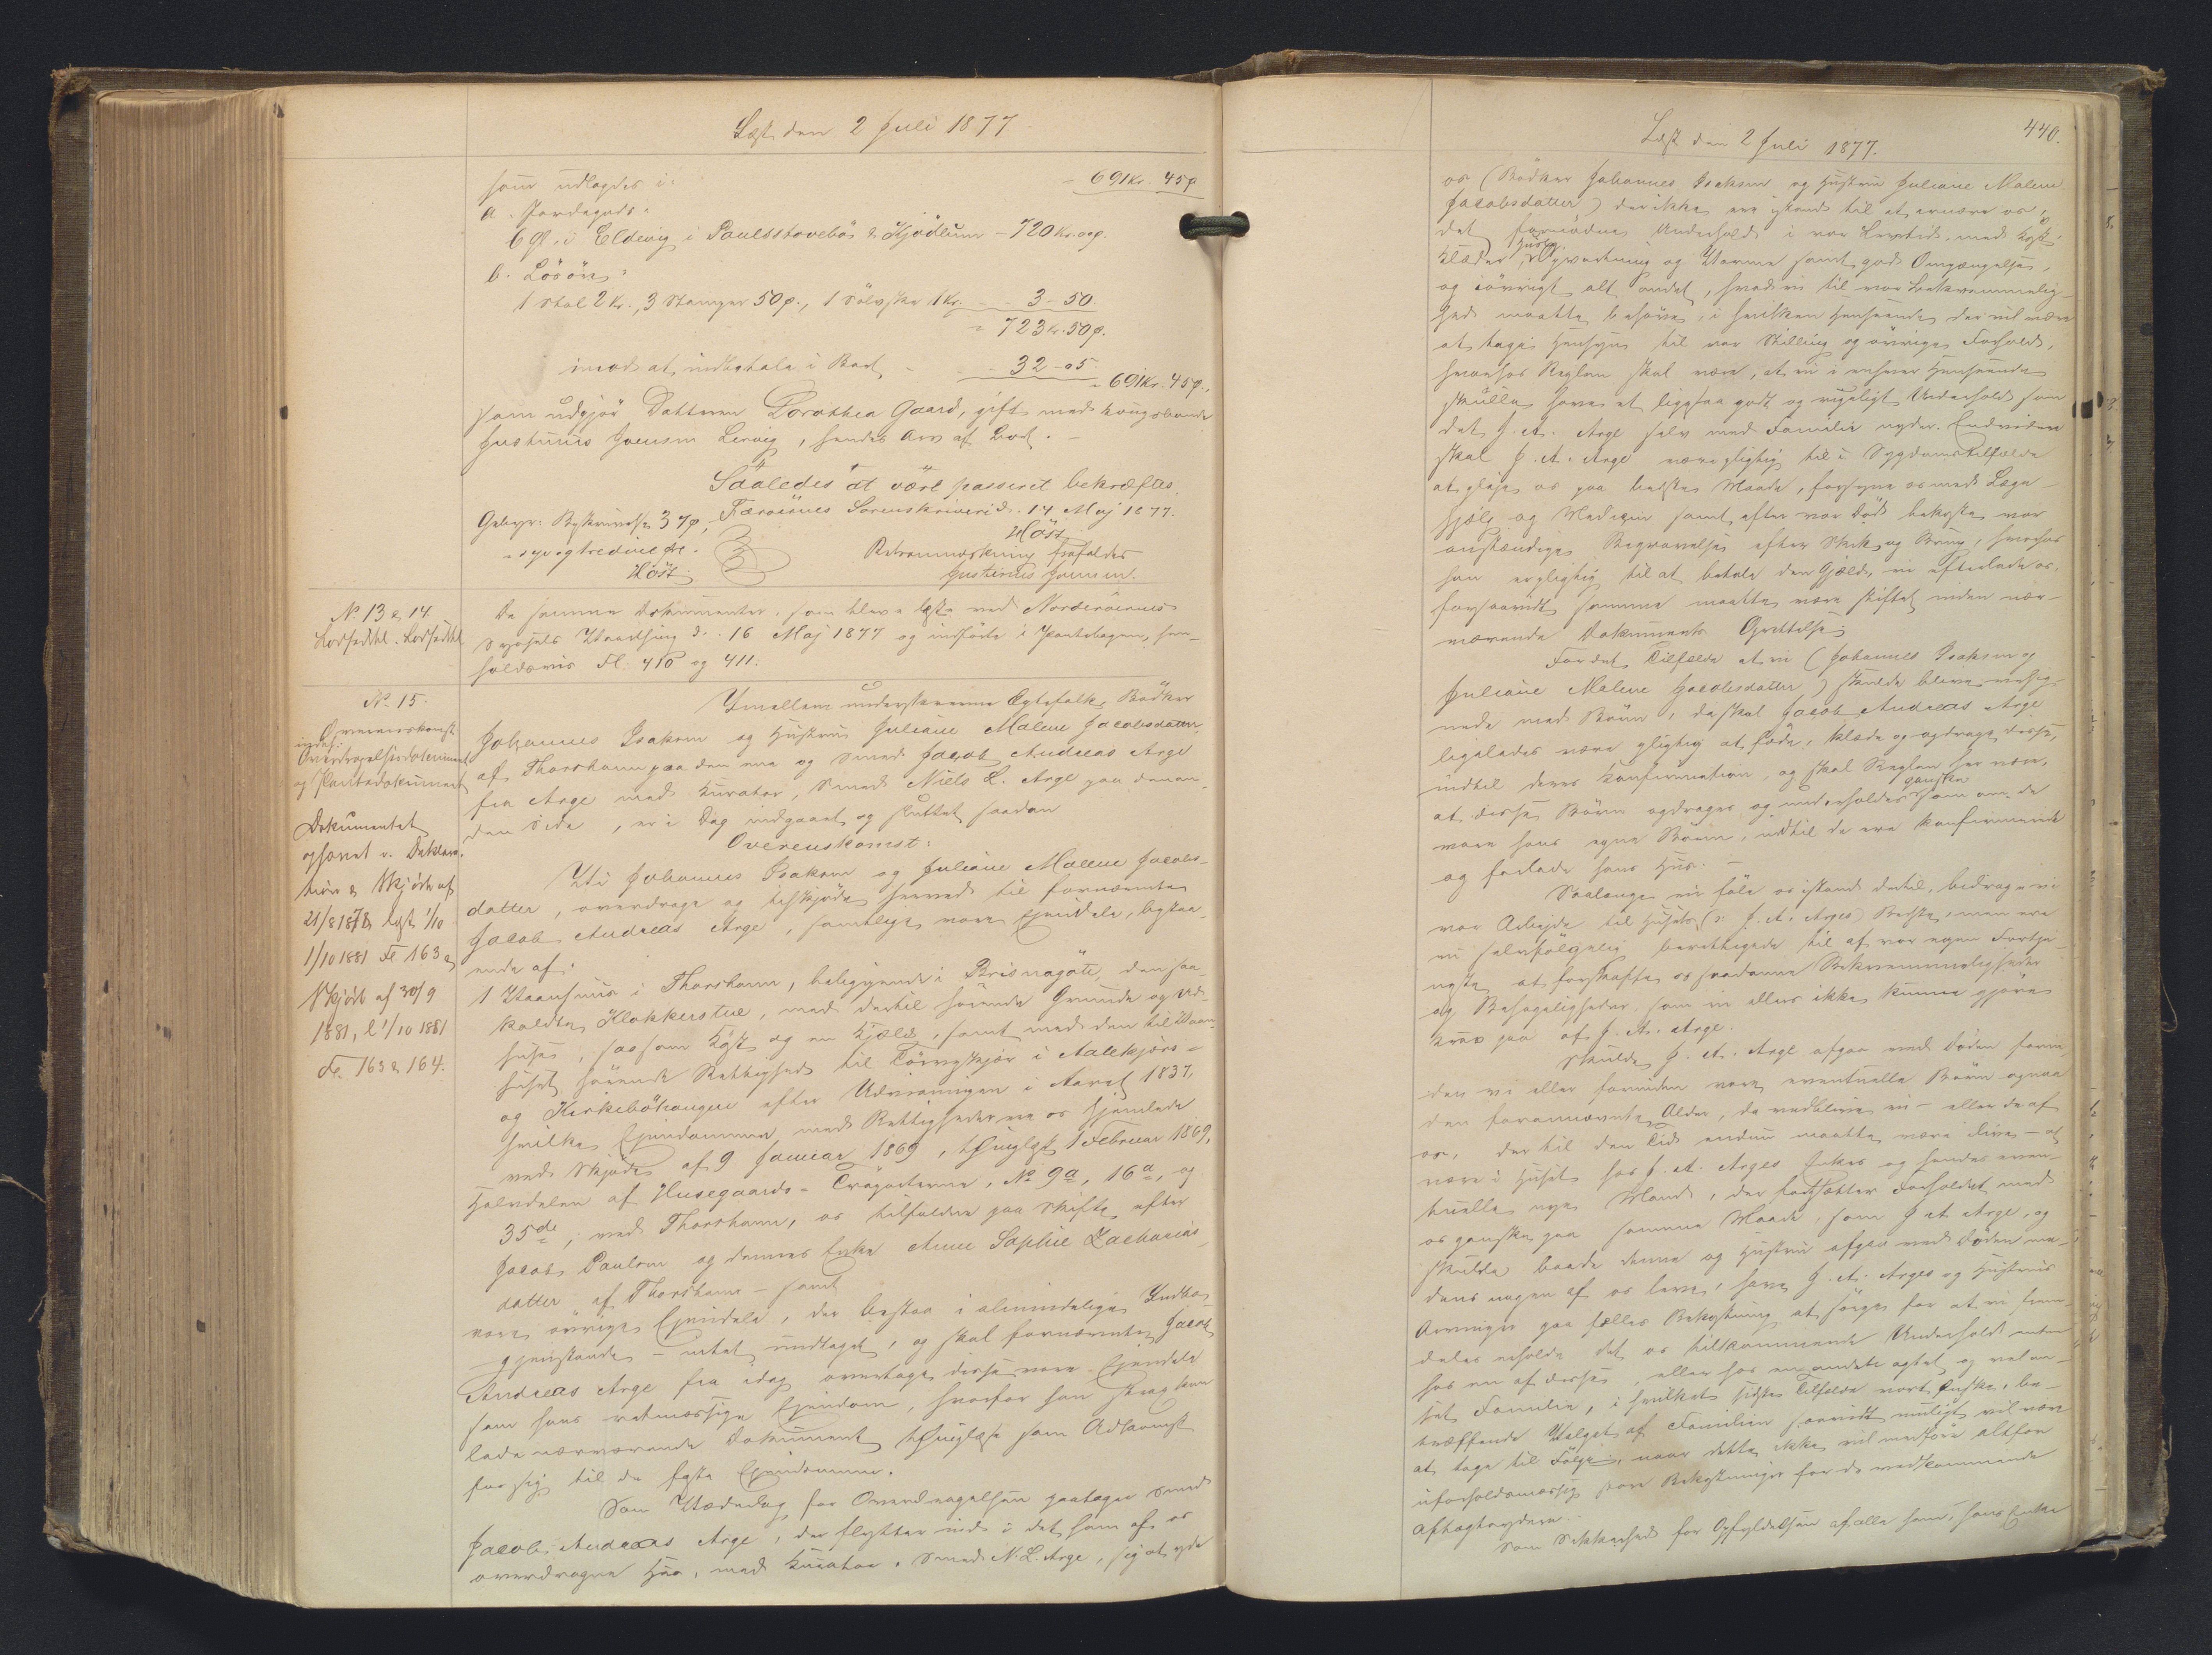 Læst den 2 Juli 1877
som udlagdes i: " 691 Kr. 45 ø
a. Jordegods:
6 Gl. i Eldevig i Poulsstovebøs & Kjødlum - 720 Kr. 00 ø.
b. Lösöre:
1 Stol 2 Kr., 3 Stamper 50 ø., 1 Sølvske 1 Kr. - 3-50.
= 723 Kr. 50 ø.
imod at indbetale i Boet - 32-05.
= 691 Kr. 45 ø.,
som udgjør Datteren Dorothea Gaard, gift med Kongsbonde
Justinus Joensen Lervig, hendes Arv af Boet. -
Således at være passeret bekræftes.
Færøernes Sorenskriveri d. 14 Maj 1877.
Høst
Gebyr: Beskrivelse 37 ø,
- syv og tredive Øre.
Høst
Justinus Joensen.
No 13 & 14.
De samme Dokumenter, som bleve læste ved Norderøernes
Syssels Vaarthing d. 16 Maj 1877 og indførte i Pantebogen, hen-
holdsvis Fl. 410 og 411.
No. 15.
Overenskomst
indeh.
Overdragelsesdokument
og Pantedokument
Dokumentet
ophævet v. Deklara-
tion & Skjøde af
21/8 1878 læst 1/10
1/10 1881 Fl 163 &
Skjøde af 30/9
1881, l 1/10 1881
Fl. 163 & 164.
Imellem undertegnede Ægtefolk, Bødker
Johannes Isaksen og Hustru Juliane Malene Jacobsdatter,
af Thorshavn paa den ene og Smed Jacob Andreas Arge
fra Arge med Kurator, Smed Niels L. Arge paa den an-
den Side, er i Dag indgaaet og sluttet saadan
Overenskomst:
Vi Johannes Isaksen og Juliane Malene Jacobs-
datter, overdrage og tilskjøde herved til fornævnte
Jacob Andreas Arge, samtlige vore Ejendele, bestaa-
ende af:
1 Vaanhuus i Thorshavn, beliggende i Brisnagöte, den saa-
kaldte Klokkerstue, med dertil hörende Grunde og Ud-
huse, saasom Löst og en Kjælder, samt med den til Vaan-
huset hörende Rettighed til Törveskjær i Aalekjærs-
og Kirkebøhaugen efter Udvisningen i Aaret 1837,
hvilke Ejendomme med Rettigheder ere os hjemlede
ved Skjøde af 9 Januar 1869, thinglæst 1 Februar 1869,
Halvdelen af Husegaards-Trøgaderne, No 9a, 16a, og
35de, ved Thorshavn, os tilfalden paa Skifte efter
Jacob Paulsen og dennes Enke Anne Sophie Zacharias-
datter af Thorshavn - samt
vore øvrige Ejendele, der bestaa i almindelige Indbo-
gjenstande - intet undtaget, og skal fornævnte Jacob
Andreas Arge fra idag overtage disse vore Ejendele
som hans retmæssige Ejendom, hvorfor han strax kan
lade nærværende Dokument thinglæse som Adkomst
for sig til de faste Ejendomme.
Som Vederlag for Overdragelsen paatager Smed
Jacob Andreas Arge, der flytter ind i det ham af os
overdragne Hus, med Kurator, Smed N. L. Arge, sig at yde
Læst den 2 Juli 1877.
440.
os (Bödker Johannes Isaksen og Hustru Juliane Malene
Jacobsdatter) der ikke ere istand til at ernære os,
det fornødne Underhold i vor Levetid, med Kost,
Klæder, Husly, Opvartning og Varme samt god Omgængelse,
og iøvrigt alt andet, hvad vi til vor Bekvemmelig-
hed maatte behøve, i hvilken Henseende der vil være
at tage Hensyn til vor Stilling og øvrige Forhold,
hvorhos Reglen skal være, at vi i enhver Henseende
skulle have et ligesaa godt og rigeligt Underhold som
det J. A. Arge selv med Familie nyder. Endvidere
skal J. A. Arge være pligtig til i Sygdomstilfælde
at pleje os paa bedste Maade, forsyne os med Læge-
hjælp og Medicin samt efter vor Død bekoste vor
anstændige Begravelse efter Skik og Brug, hvorhos
han er pligtig til at betale den Gjæld, vi efterlade os,
forsaavidt samme maatte være stiftet inden nær-
værende Dokuments Oprettelse.
For det Tilfælde at vi (Johannes Isaksen og
Juliane Malene Jacobsdatter) skulde blive velsig-
nede med Börn, da skal Jacob Andreas Arge
ligeledes være pligtig at føde, klæde og opdrage disse,
indtil deres Konfirmation, og skal Reglen her være,
at disse Børn opdrages og underholdes ganske som om de
vare hans egne Børn, indtil de ere konfirmerede
og forlade hans Hus. -
Saalænge vi føle os istand dertil, bidrage vi
vor Arbejde til Husets (: J. A. Arges) Bedste, men ere
vi selvfølgelig berettigede til af vor egen Fortje-
neste at forskaffe os saadanne Bekvemmeligheder
og Behageligheder, som vi ellers ikke kunne gjøre
Krav paa af J. A. Arge.
Skulde J. A. Arge afgaa ved Døden forin-
den vi eller forinden vore eventuelle Børn opnaa
den forannævnte Alder, da vedblive vi - eller de af
os, der til den Tid endnu maatte være i Live - at
være i Huset hos J. A. Arges Enke og hendes even-
tuelle nye Mand, der fortsætter Forholdet med
os ganske paa samme Maade, som J A Arge, og
skulde baade denne og Hustru afgaa ved Døden me-
dens nogen af os leve, have J. A. Arges og Hustrus
Arvinger paa fælles Bekostning at sørge for at vi frem-
deles erholde det os tilkommende Underhold enten
hos en af disse, eller hos en anden agtet og velan-
set Familie, i hvilket sidste Tilfælde vort Ønske, be-
træffende Valget af Familien saavidt muligt vil være
at tage til Følge, naar dette ikke vil medføre altfor
uforholdsmæssig store Bekostninger for de vedkommende
Aftægtsydere.
Som Sikkerhed for Opfyldelsen af alle ham, hans Enke